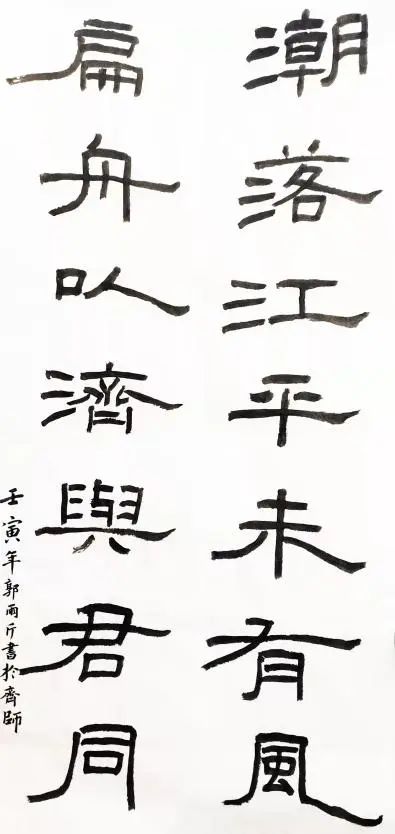 潮落江平未有風
扁舟㕥濟與君同
壬寅年郭雨斤書於齊師